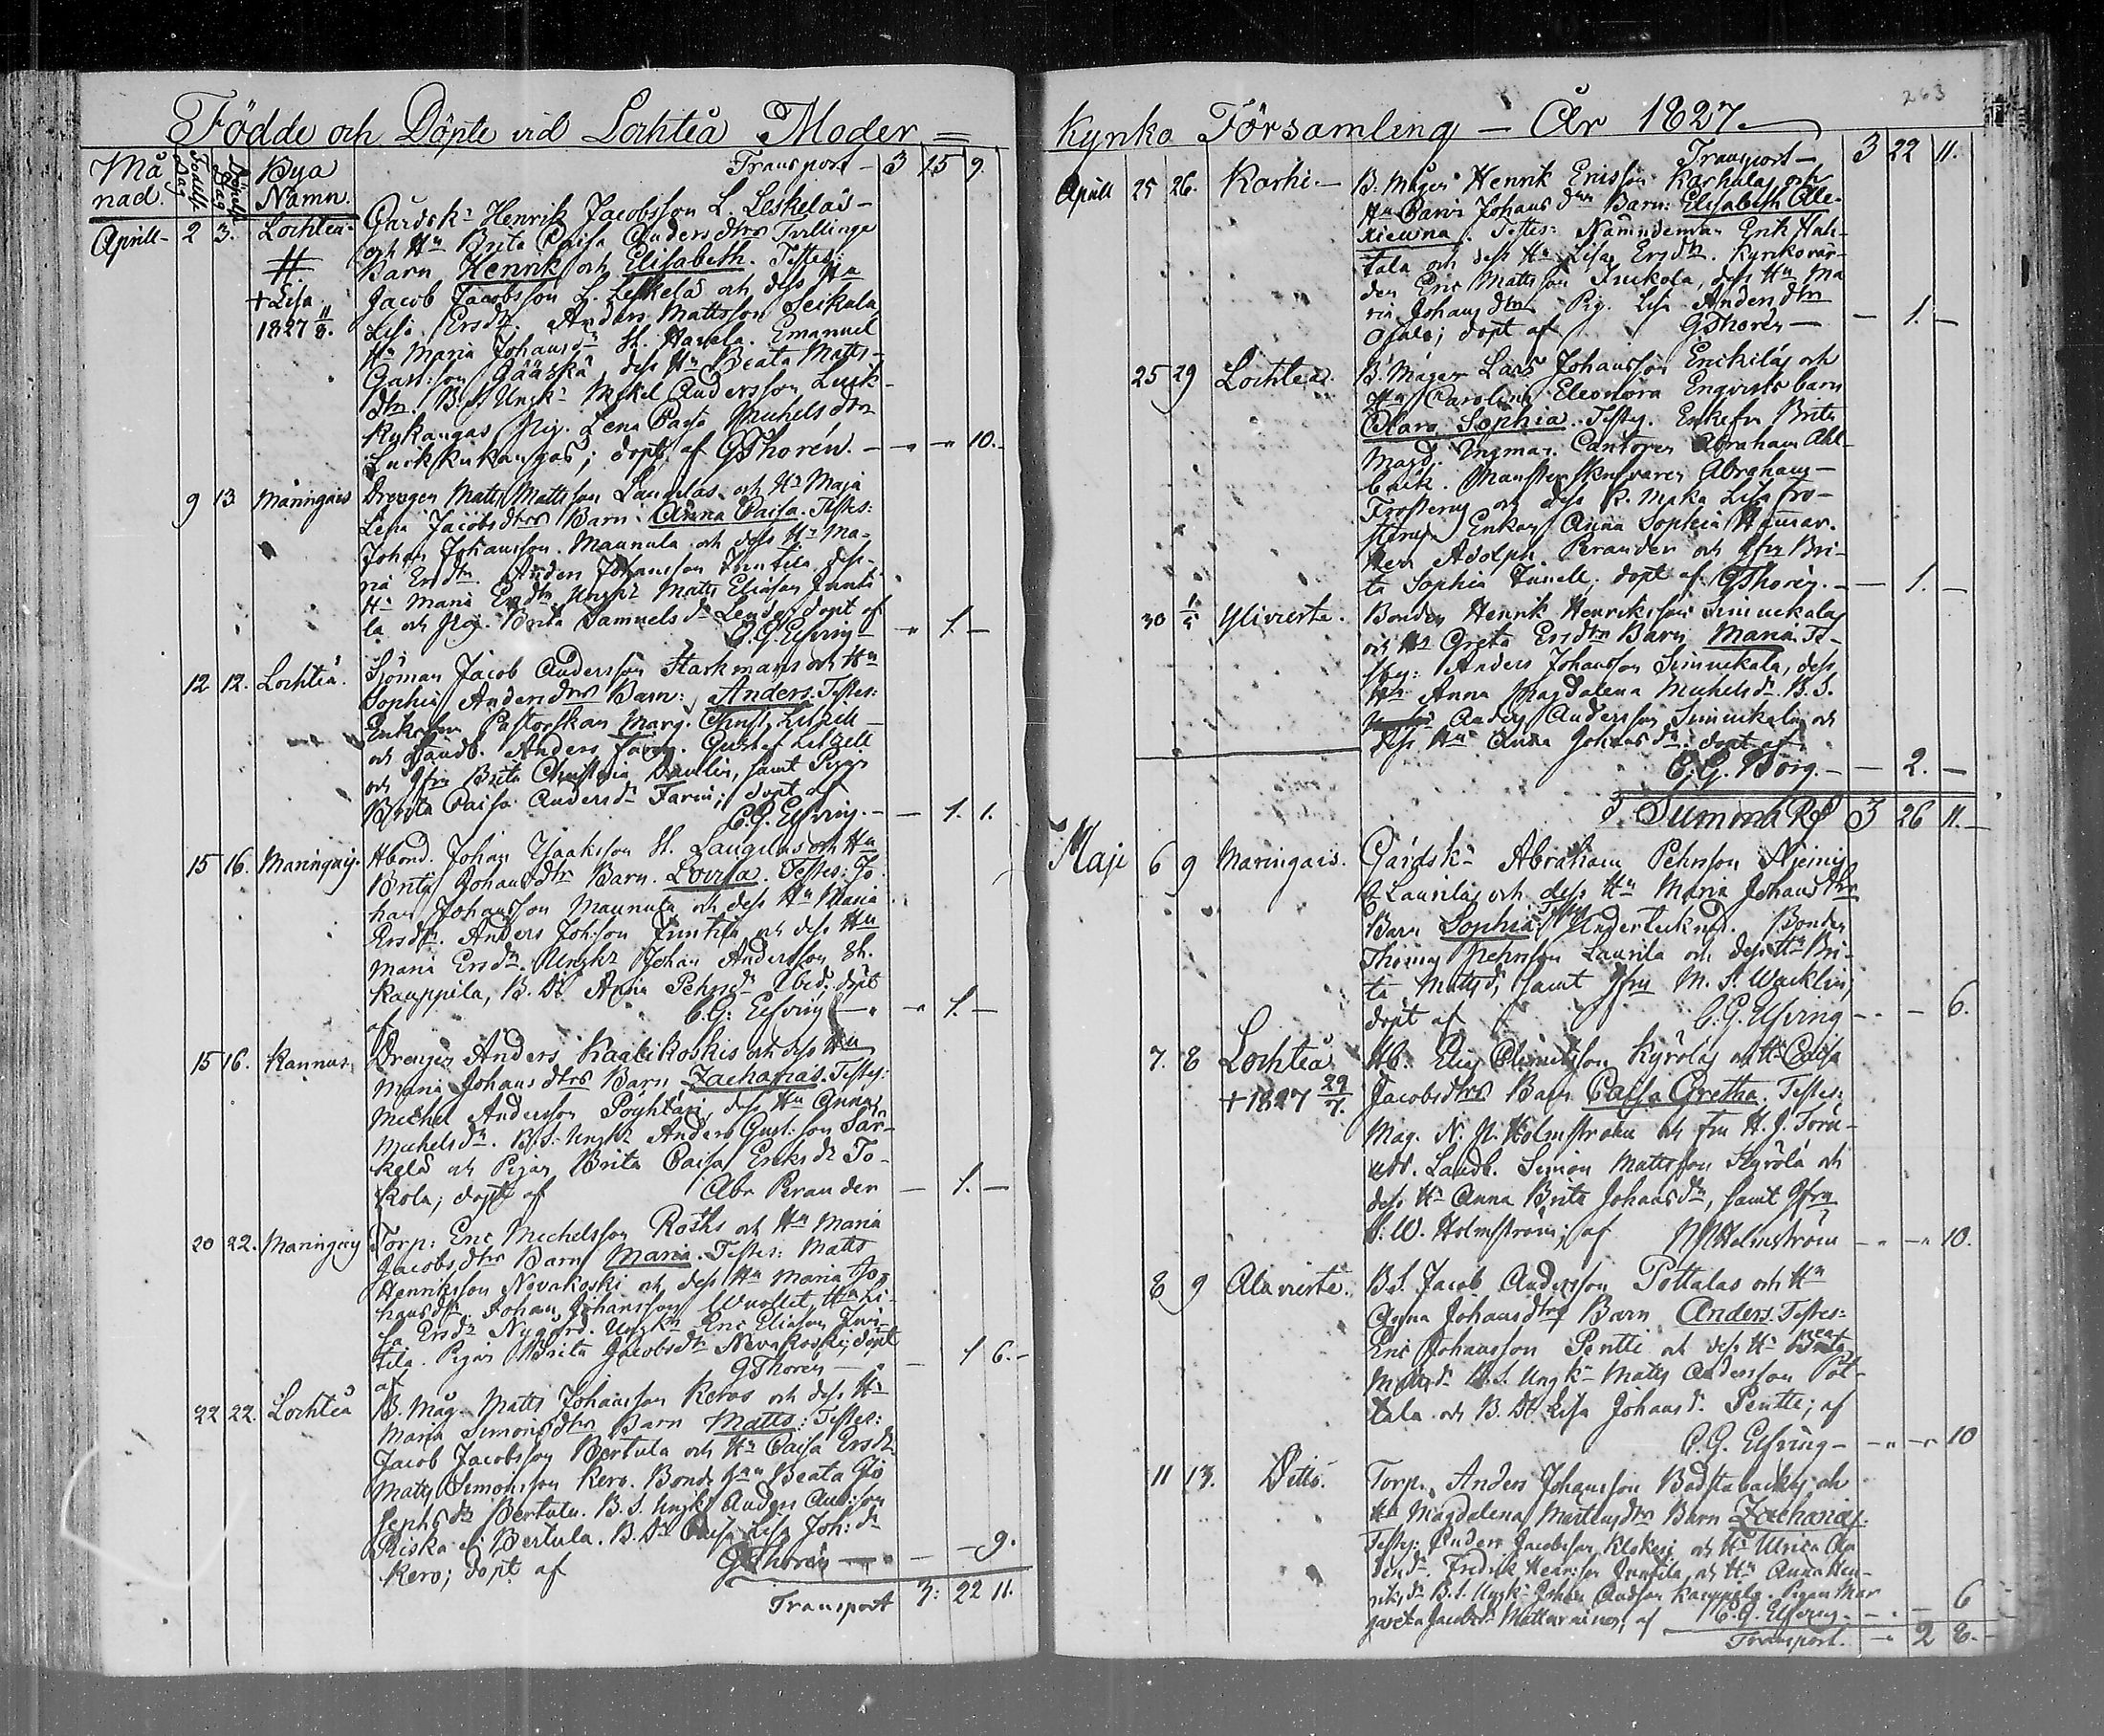 263
Födde och Döpte vid Lochteå Moder =
Månad. Födelse Dag Döpelse Dag Bya Namn. Transport - 3 15 9.
Aprill - 2 3. Lochteå - Gårdsk: Henrik Jacobsson L. Leskeläs -
och Hu Brita Caisa Andersdtrs Tvillinge
# Barn Henrik och Elisabeth. Testes:
+ Lisa Jacob Jacobsson L. Leskelä och dess Hu
1827 11/8. Lisa Ersdr. Anders Mattsson Seikala
Hu Maria Johansdr St. Hanela. Emanuel
Gust:son Jääskä, dess Hu Beata Matts-
dtr. B. S. Ungk: Mickel Andersson Luik-
kukangas Pig. Lena Caisa Michelsdtr
Luikkukangas; döpt af G Thorén. - - - 10.
9 13 Maringais Drengen Matts Mattsson Laurilas och Hu Maja
Lena Jacobsdtrs Barn Anna Caisa. Testes:
Johan Johansson Maunula och dess Hu Ma-
ria Ersdtr Anders Johansson Junttila dess
Hu Maria Ersdtr Ungk: Matts Eliasson Juntti
la och Pig. Brita Samuelsdr döpt af
C. G. Elfving - - 1. -
12 12. Lochteå. Sjöman Jacob Andersson Starkmans och Hu
Sophia Andersdtrs Barn: Anders. Testes:
Enkefru Pastorskan Marg. Christ.
och Handb. Anders Gustaf
och Jfru Brita Christina samt Pigan
Brita Caisa Andersdr döpt af
C. G. Elfving. - - 1. 1.
15 16. Maringais. Hbond. Johan Isaaksson St. Laurilas och Hu
Brita Johansdtrs Barn. Lovisa. Testes: Jo-
han Johansson Maunula och dess Hu Maria
Ersdtr. Anders Joh:son Junttila och dess Hu
Maria Ersdr. Ungk: Johan Andersson St.
Kauppila, B. Dt. Anna Pehrsdr ibid: döpt
af C. G: Elfving - - 1. -
15 16. Kannus. Drengen Anders Kaalikoskis och dess Hu
Maria Johansdtrs Barn Zacharias. Testes:
Michel Andersson Pöyhtäri, dess Hu Anna
Michelsdr. B. S. Ungk: Anders Gust:son Sär-
kelä och Pigan Brita Caisa Eriksdr To-
kola; döpt af Abr Brander - 1. -
20 22. Maringais Torp: Eric Michelsson Roths och Hu Maria
Jacobsdtrs Barn Maria. Testes: Matts
Henriksson Nevakoski och dess Hu Maria Jo-
hansdtr. Johan Johansson Wuollet, Hu Li-
sa Ersdr Nygård. Ungk: Eric Eliasson Jun-
tila. Pigan Brita Jacobsdtr Nevakoski; döpt
af G Thorén - - 1 6. -
22 22. Lochteå B. Måg. Matts Johansson Keros och dess Hu
Maria Simonsdtrs Barn Matts: Testes:
Jacob Jacobsson Bertula och Hu Caisa Ersdr
Matts Simonsson Kero. Bonde Hu Beata Jo
sephsdr Bertula. B. S. Ungk: Anders And:son
Riska Bertula. B. Dt. Caisa Lisa Joh:dr
Kero; döpt af G Thorén - - - 9.
Transport 3: 22 11.
Kyrko Församling - År 1827.
Transport - 3 22 11.
Aprill 25 26. Karhi. - B. Mågen Henrik Ericsson Karhulas och
Hu Carin Johansdtrs Barn: Elisabeth Ale-
xievina. Testes: Nämndeman Erik Hah-
tala och dess Hu Lisa Ersdtr. Kyrkovär-
den Eric Mattsson Juckola, dess Hu Ma
ria Johansdtr Pig. Lisa Andersdtr
Ojala; döpt af G Thorén - - 1. -
25 29 Lochteå. B. Mågen Lars Johansson Erickiläs och
Hu Carolina Eleonora Enqvists barn
Clara Sophia. Testes. Enkefru Brita
Magd. Ingman. Cantoren Abraham Ahl-
bäck. Abraham
Frosterus och dess K. Maka Lisa Fro-
sterus Enkan Anna Sophia
Herr Adolph Brander och Jfru Bri-
ta Sophia döpt af G Thorén. - - 1. -
30 1/5 Ylivierte. Bonden Henrik Henriksson Simuckalas
och Hu Greta Ersdtrs Barn Maria. Te-
stes: Anders Johansson Simuckala, dess
Hu Anna Magdalena Michelsdr. B. S.
Anders Andersson Simuckala och
dess Hu Anna Johansdr. döpt af
C. G. Borg. - - 2. -
Summa Rs 3 26 11. -
Maji 6 9 Maringais. Gårdsk: Abraham Pehrsson
Laurilas och dess Hu Maria Johansdtrs
Barn Sophia Testes Undertecknad. Bonden
Thomas Pehrsson Laurila och dess Hu Bri-
ta Mattsdr, samt Jfru M. S. Wacklin;
döpt af C. G. Elfving - - - 6.
7. 8 Lochteå Hb: Elias Clemetsson Kyröläs och Hu Caisa
+ 1827 29/7. Jacobsdtrs Barn Caisa Gretha. Testes:
Mag. N. N. Holmström och Fru H. J. Torn-
udd. Landb. Simon Mattsson Kyrölä och
dess Hu Anna Brita Johansdr, samt Jfru
S. W. Holmström; af N N Holmström - - - 10.
8 9 Alavierte. B. S. Jacob Andersson Pottalas och Hu
Anna Johansdtrs Barn Anders. Testes:
Eric Johansson Pentti och dess Hu Beata
Mattsdr B. S. Ungk: Matts Andersson Pot-
tala och B. Dt. Lisa Johansdr Pentti; af
C. G. Elfving - - - 10
11 13. Ditto. Torp. Anders Johansson Badstubackas och
Hu Magdalena Mårtensdtrs Barn Zacharias.
Testes: Anders Jacobsson Klokeri och Hu Ulrica An
dersdr. Fredrik Henr:son Junttila och Hu Anna Hen-
riksdr B. S. Ungk: Johan Andsson Kauppila. Pigan Mar
gareta Jacobsdr af C. G. Elfving. - - 6
Transport. - 2 8. -